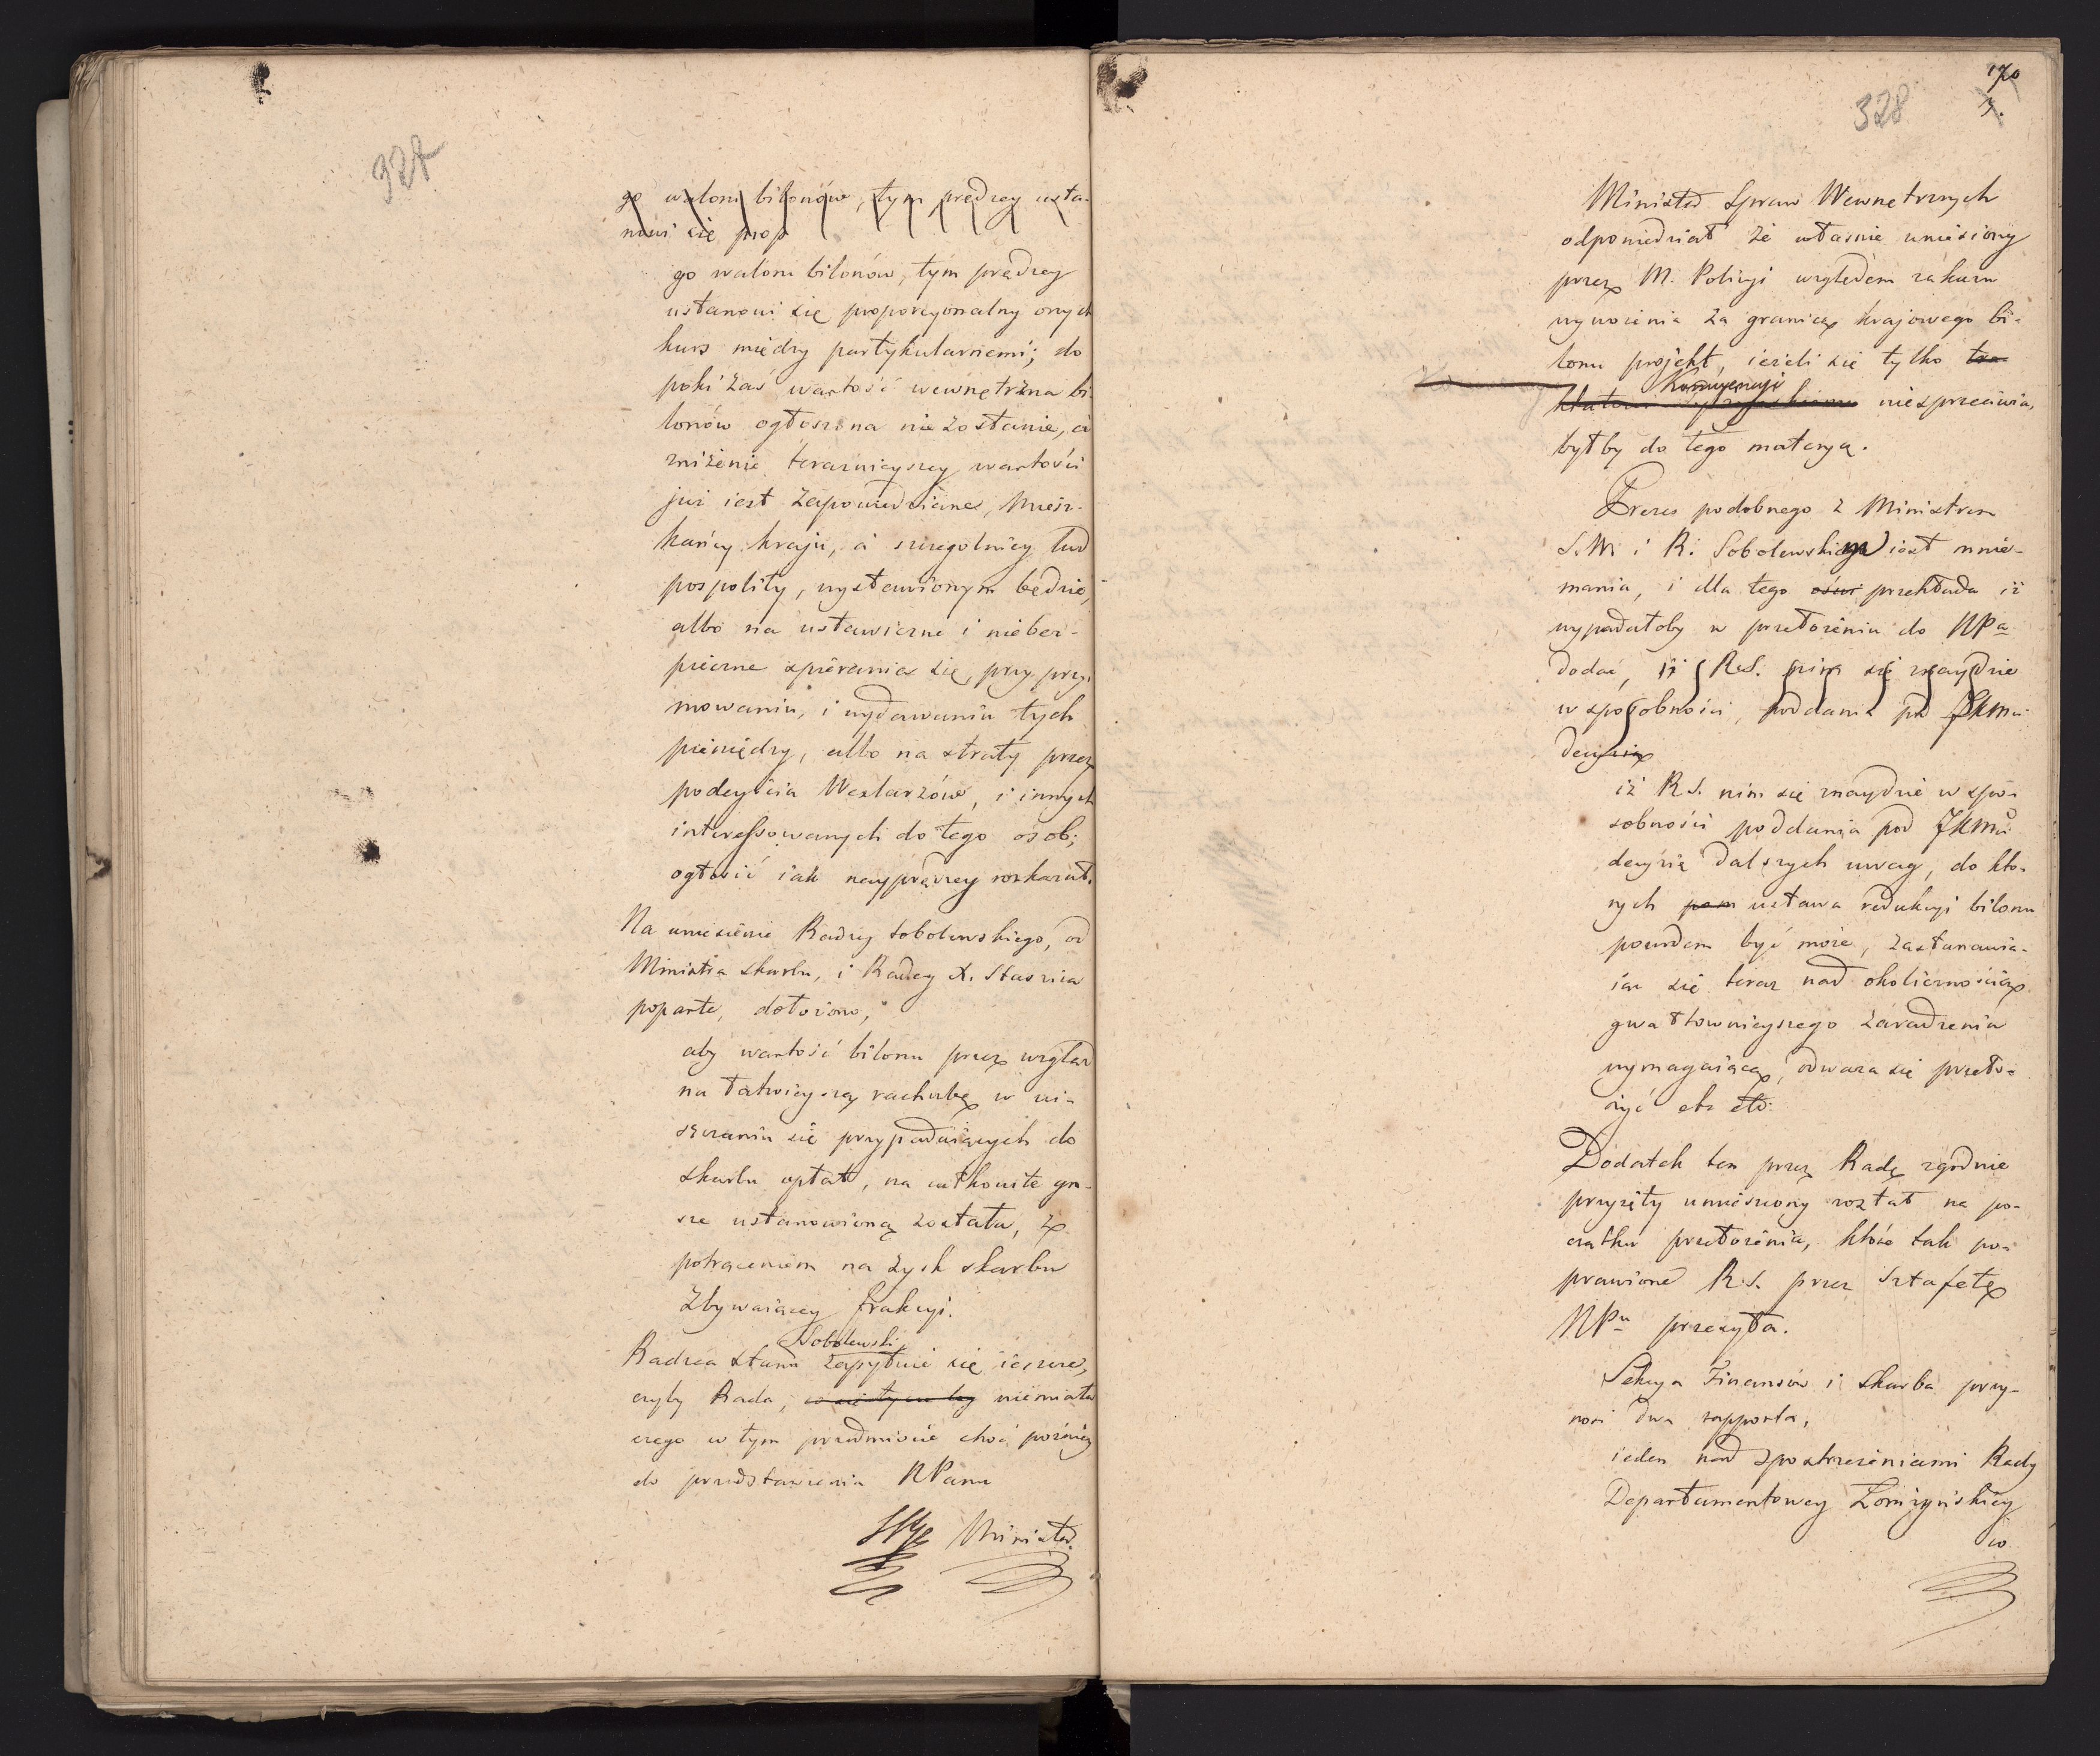 327
go waloru bilonów, tym prędzey usta-
nowi się prop
go waloru bilonów, tym prędzey
ustanowi się proporcyonalny onych
kurs między partykularnemi; do
poki zaś wartość wewnętrzna bi-
lonów ogłoszona nie zostanie, a
zniżenie teraznieyszey wartości
już iest zapowiedziane, miesz-
kańcy kraju, a szczegolniey lud
pospolity, wystawionym będzie,
albo na ustawiczne i niebez-
pieczne spierania się, przy przy-
mowaniu, i wydawaniu tych
pieniędzy, albo na straty przez
podeyścia Wexlarzów, i innych
interessowanych do tego osob;
ogłosić iak nayprędzey rozkazał.
Na wniesienie Radzcy Sobolewskiego, od
Ministra Skarbu, i Radcy X. Staszica
poparte, dołożono,
aby wartość bilonu przez wzgląd
na łatwieyszą rachubę w ui-
szczaniu się przypadaiących do
skarbu opłat, na całkowite gro-
sze ustanowioną została, z
potrąceniem na zysk skarbu
zbywaiącey frakcyi.
Sobolewski
Radzca Stanu zapytuie się ieszcze,
czyby Rada, niemiała
czego w tym przedmiocie choć poźniey
do przedstawienia NPanu
Minister
170
328
3.
Minister Spraw Wewnętrznych
odpowiedział że własnie wniesiony
przez M. Policyi względem zakazu
wywożenia za granicę krajowego bi-
lonu projekt, ieżeli się tylko tra-
Konwencyi
ktatowi niesprzeciwia,
byłby do tego materyą.
Prezes podobnego z Ministrem
S.W. i R. Sobolewskim iest mnie-
mania, i dla tego oświ przekłada iż
wypadałoby w przełożeniu do NPa
dodać, iż R.S. nim się znaydzie
w sposobności, poddania pod JKMci
decyzią
iż R.S. nim się znaydzie w spo-
sobności poddania pod JKMci
decyzią dalszych uwag, do któ-
rych pow ustawa redukcyi bilonu
powodem być może, zastanawia-
iąc się teraz nad okolicznością
gwałtownieyszego zaradzenia
wymagaiącą, odważa się przeło-
żyć etc etc:
Dodatek ten przez Radę zgodnie
przyięty umieszczony został na po-
czątku przełożenia, które tak po-
prawione R.S. przez Sztafetę
NPu przesyła.
Sekcya Finansów i Skarbu przy-
nosi dwa rapporta,
ieden nad spostrzeżeniami Rady
Departamentowey Łomżyńskiey
w